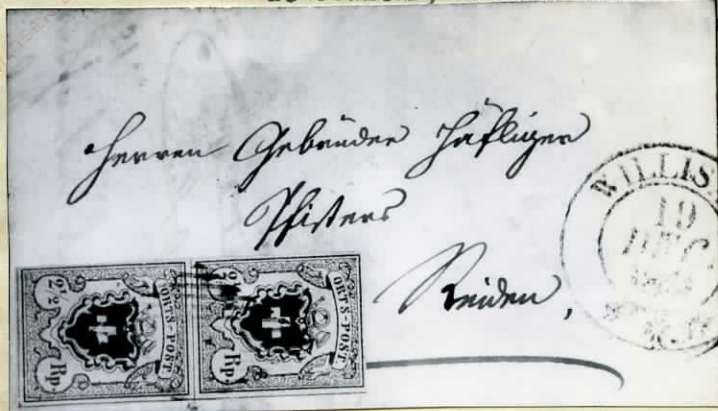 Herren Gebrüder Häfliger
Pfisters
Reiden,
WILLIS
19
DEC
2 1/2 ORTS-POST Rp.
2 1/2 ORTS-POST Rp.